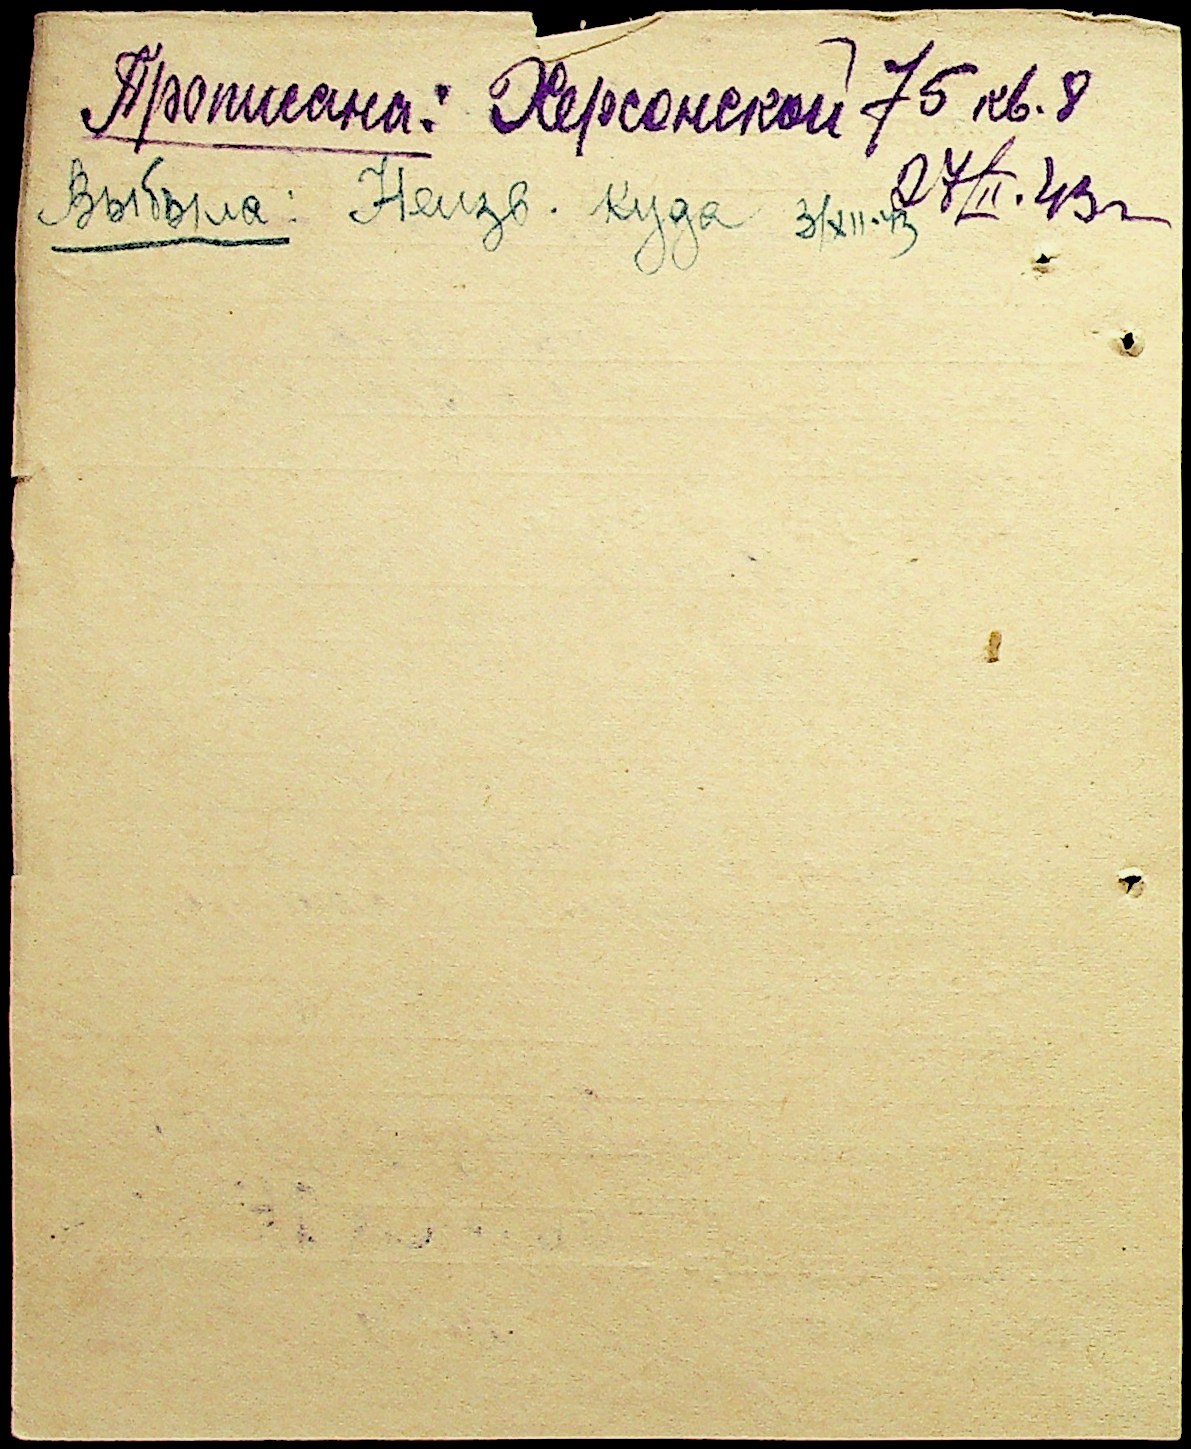 Прописана: Херсонской 75 кв. 8
27/II. 43 г
Выбыла: Неизв. куда 3/XII-43